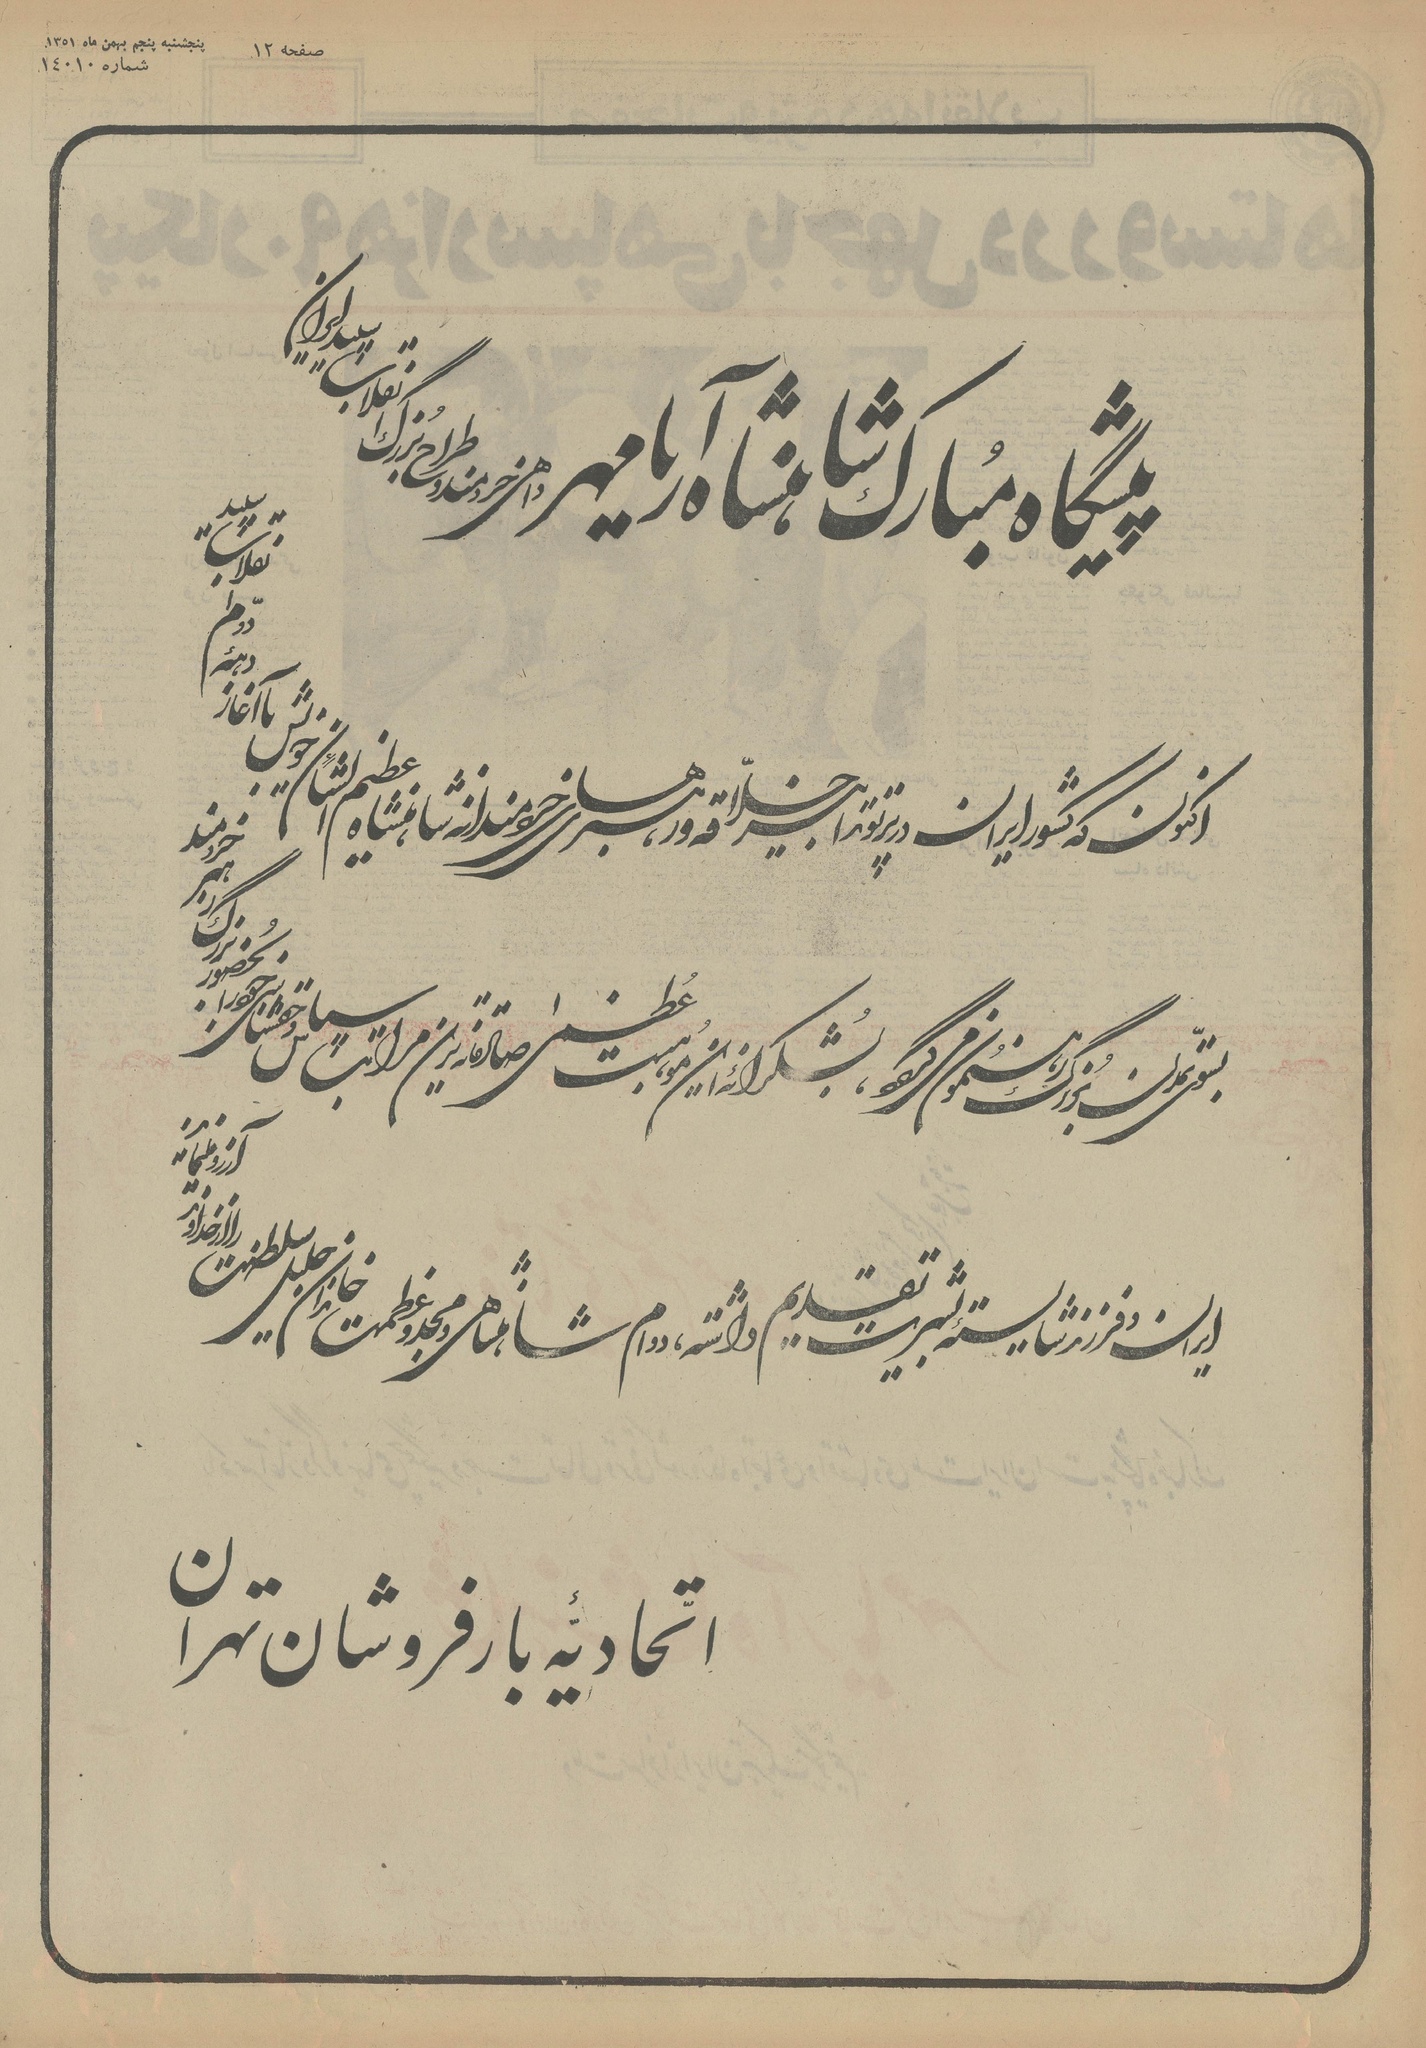 صفحه ۱۲
پنجشنبه پنجم بهمن ماه ۱۳۵۱
شماره ۱۴۰۱۰
پیشگاه مبارک شاهنشاه آریامهر داهی خردمند و طراح بزرگ انقلاب سپید ایران
اکنون که کشور ایران در پرتو تدابیر خلاقه و رهبری‌های خردمندانه شاهنشاه عظیم‌الشأن خویش با آغاز دههٔ دوم انقلاب سپید
بسوی تمدن بزرگ رهنمون می‌گردد، بشکرانهٔ این موهبت عظمی صادقانه‌ترین مراتب سپاس و حقشناسی خود را بحضور رهبر بزرگ خردمند
ایران و فرزند شایستهٔ بشریت تقدیم داشته، دوام شاهنشاهی و مجد و عظمت خاندان جلیل سلطنت را از خداوند آرزومندیم
اتحادیهٔ بارفروشان تهران